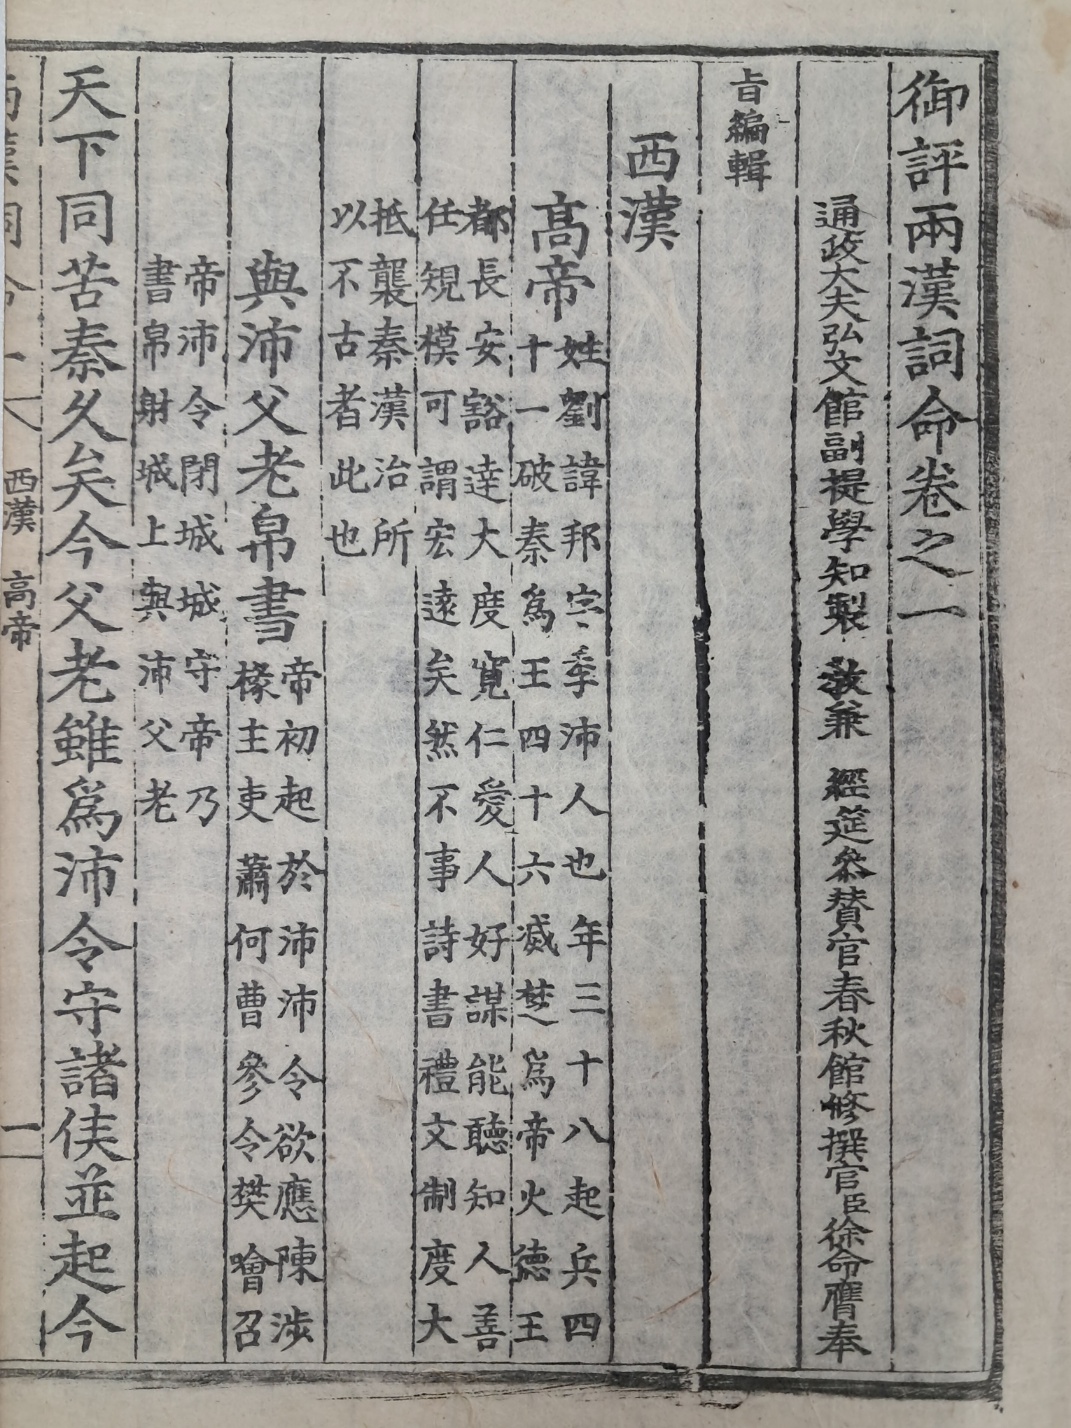 御評兩漢詞命卷之一
通政大夫弘文館副提學知製 敎兼 經筵參贊官春秋館修撰官臣徐命膺奉
旨編輯
西漢
高帝 姓劉諱邦字季沛人也年三十八起兵四
十一破秦爲王四十六滅楚爲帝火德王
都長安豁達大度寬仁愛人好謀能聽知人善
任規模可謂宏遠矣然不事詩書禮文制度大
抵襲秦漢治所
以不古者此也
與沛父老帛書 帝初起於沛沛令欲應陳涉
椽主吏蕭何曹參令樊噲召
帝沛令閉城城守帝乃
書帛射城上與沛父老
天下同苦秦久矣今父老雖爲沛令守諸侯並起今
西漢 高帝
一